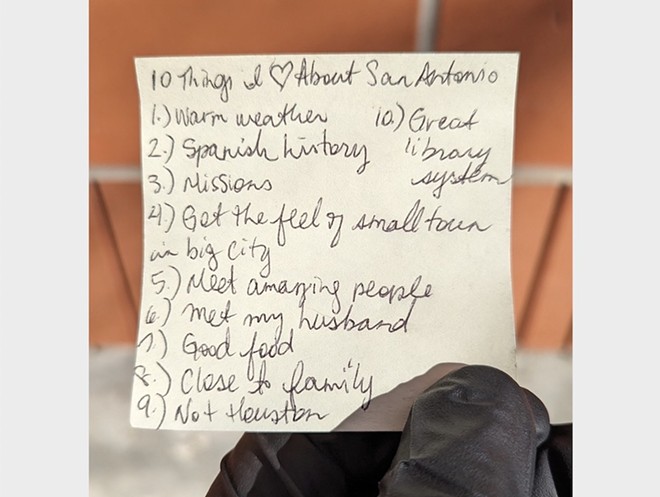 10 Things I ♡ About San Antonio
1.) Warm weather
2.) Spanish history
3.) Missions
4.) Get the feel of small town
in big city
5.) Meet amazing people
6.) Met my husband
7.) Good food
8.) Close to family
9.) Not Houston
10.) Great
library
system